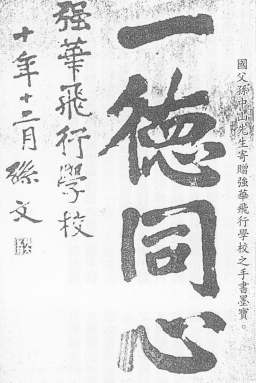 國父孫中山先生寄贈強華飛行學校之手書墨寶。
一德同心
强華飛行學校
十年十二月 孫文